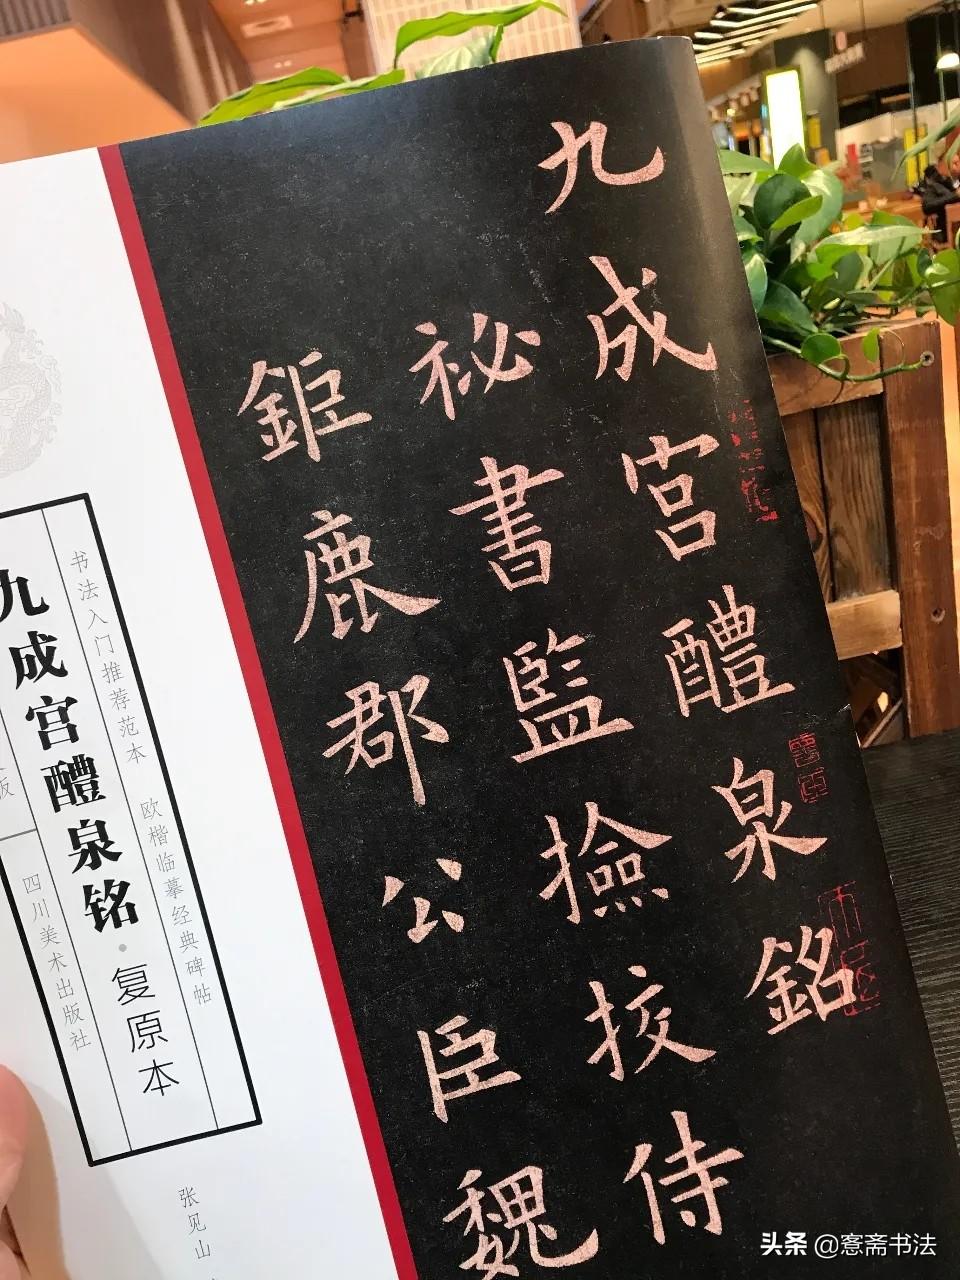 九成宮醴泉銘
祕書監撿挍侍
鉅鹿郡公臣魏
书法入门推荐范本 欧楷临摹经典碑帖
九成宫醴泉铭·复原本
四川美术出版社
版
张见山
头条 @愙斋书法